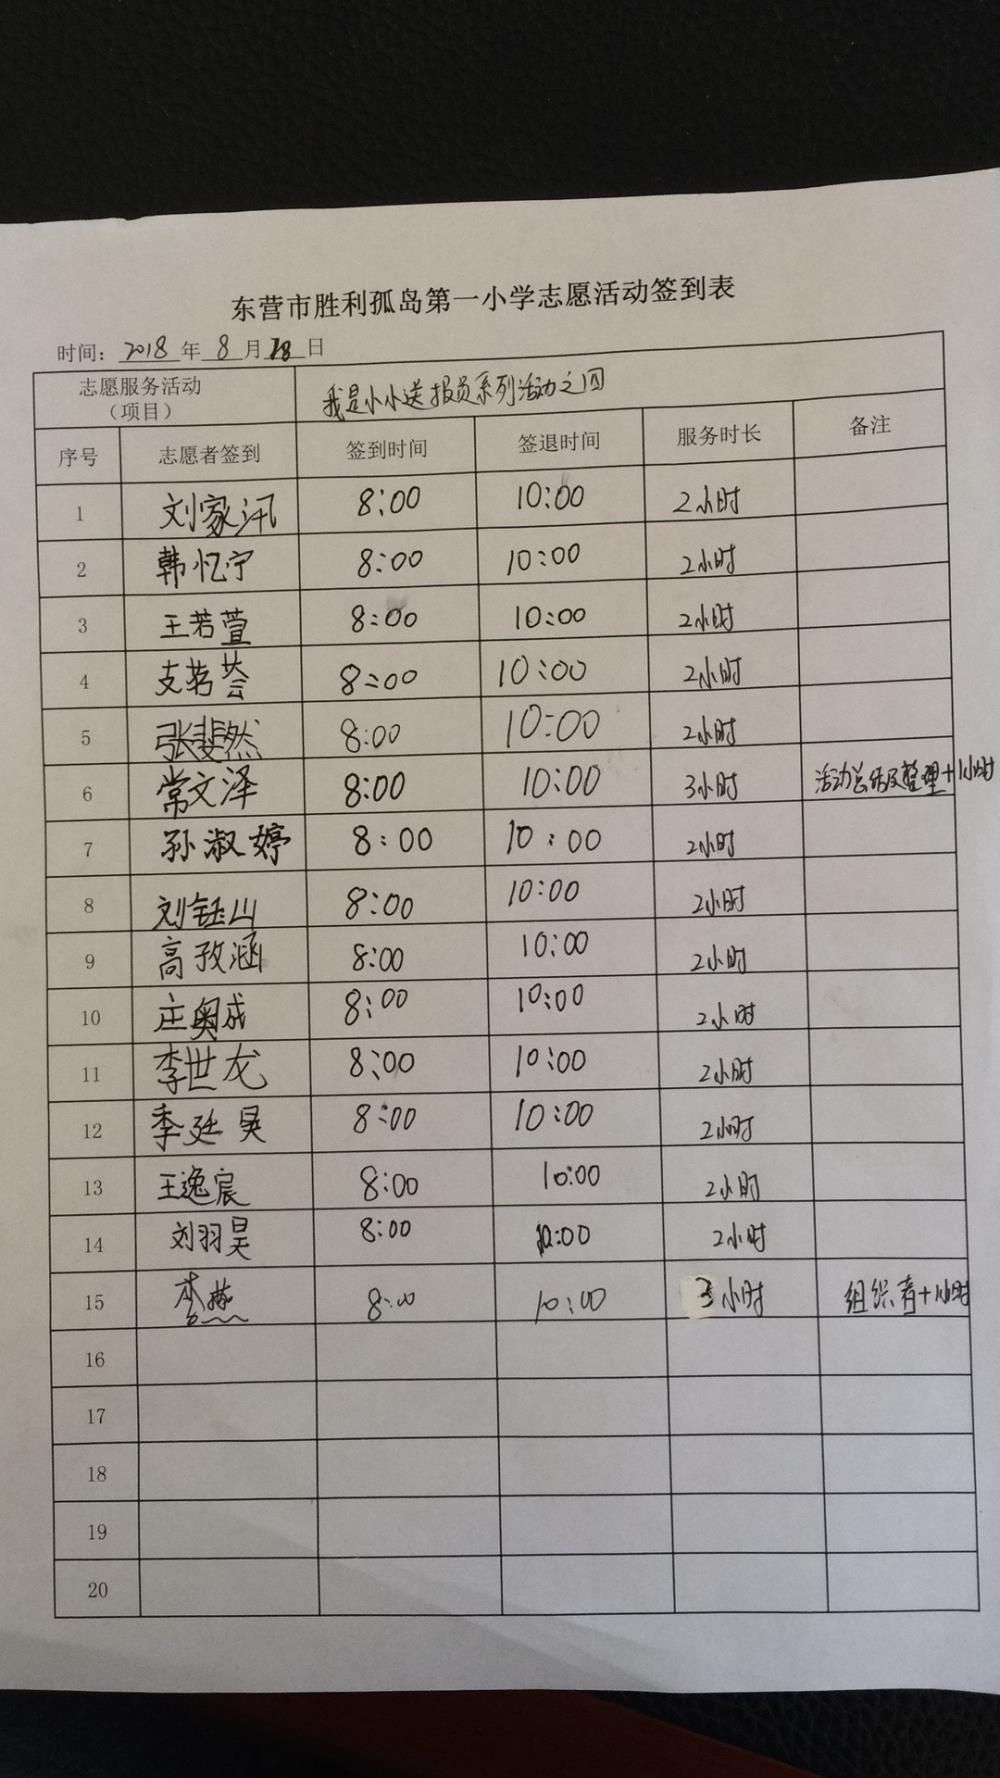 东营市胜利孤岛第一小学志愿活动签到表
时间：2018年8月18日
志愿服务活动（项目） 我是小小送报员系列活动之四
序号 志愿者签到 签到时间 签退时间 服务时长 备注
1 刘家汛 8:00 10:00 2小时
2 韩忆宁 8:00 10:00 2小时
3 王若萱 8:00 10:00 2小时
4 支茗荟 8:00 10:00 2小时
5 张斐然 8:00 10:00 2小时
6 常文泽 8:00 10:00 3小时 活动总结及整理+1小时
7 孙淑婷 8:00 10:00 2小时
8 刘钰山 8:00 10:00 2小时
9 高孜涵 8:00 10:00 2小时
10 庄奥成 8:00 10:00 2小时
11 李世龙 8:00 10:00 2小时
12 李廷昊 8:00 10:00 2小时
13 王逸宸 8:00 10:00 2小时
14 刘羽昊 8:00 10:00 2小时
15 8:00 10:00 3小时 组织者+1小时
16
17
18
19
20